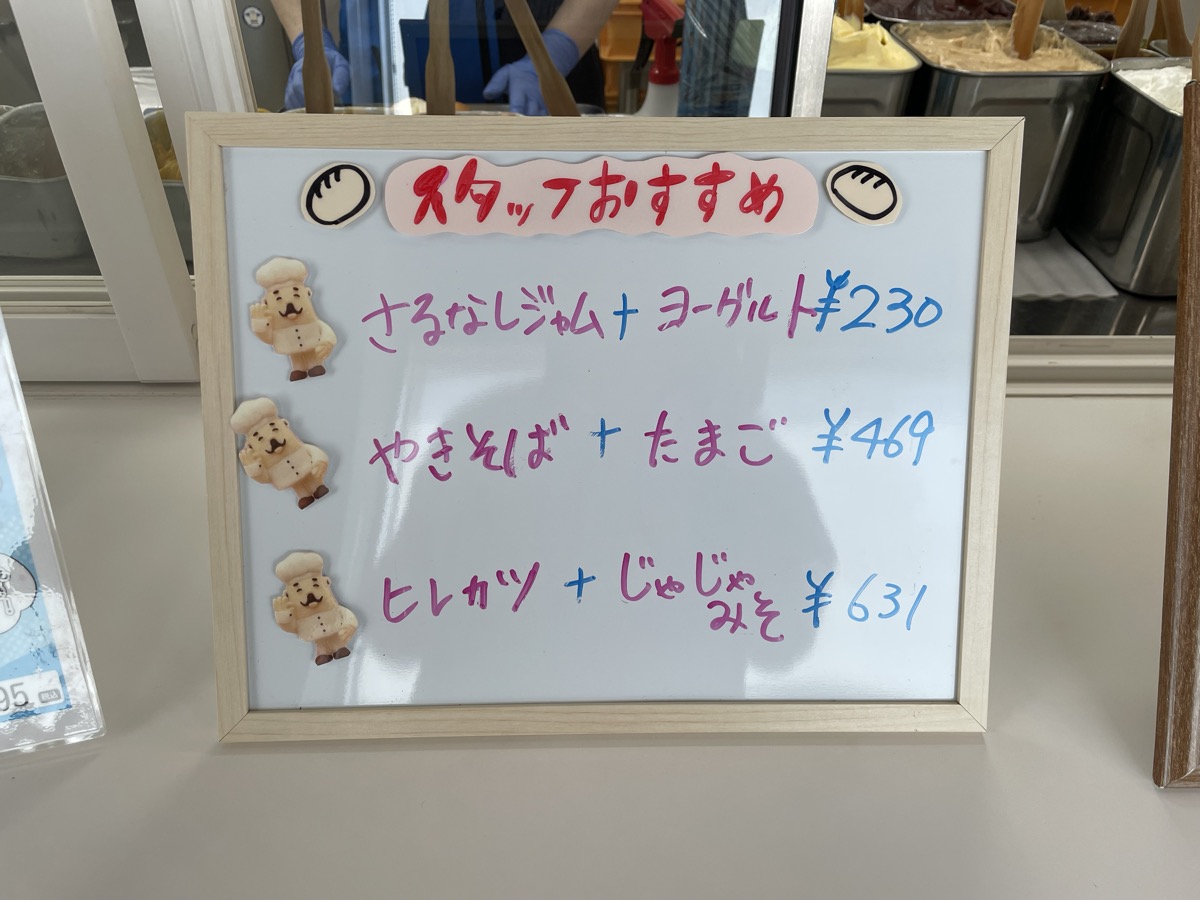 スタッフおすすめ
さるなしジャム + ヨーグルト ¥230
やきそば + たまご ¥469
ヒレカツ + じゃじゃ
みそ ¥631
95 税込